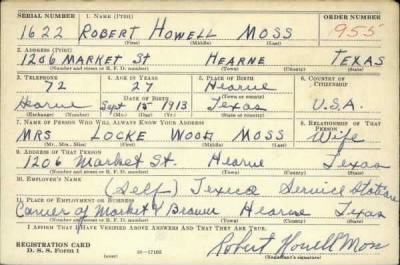 SERIAL NUMBER 1. NAME (Print) ORDER NUMBER
1622 ROBERT HOWELL MOSS 955
(First) (Middle) (Last)
2. ADDRESS (Print)
1206 MARKET St HEARNE TEXAS
(Number and street or R. F. D. number) (Town) (County) (State)
3. TELEPHONE 4. AGE IN YEARS 5. PLACE OF BIRTH 6. COUNTRY OF CITIZENSHIP
72 27 Hearne
DATE OF BIRTH (Town or county)
Hearne Sept 15 1913 Texas U.S.A.
(Exchange) (Number) (Mo.) (Day) (Yr.) (State or country)
7. NAME OF PERSON WHO WILL ALWAYS KNOW YOUR ADDRESS 8. RELATIONSHIP OF THAT PERSON
MRS LOCKE MOSS Wife
(Mr., Mrs., Miss) (First) (Middle) (Last)
9. ADDRESS OF THAT PERSON
1206 Market St. Hearne Texas
(Number and street or R. F. D. number) (Town) (County) (State)
10. EMPLOYER'S NAME
(Self) Service Station
11. PLACE OF EMPLOYMENT OR BUSINESS
Corner of Market & Hearne Texas
(Number and street or R. F. D. number) (Town) (County) (State)
I AFFIRM THAT I HAVE VERIFIED ABOVE ANSWERS AND THAT THEY ARE TRUE.
REGISTRATION CARD
D. S. S. Form 1 16—17105 Robert Howell Moss
(Registrant's signature)